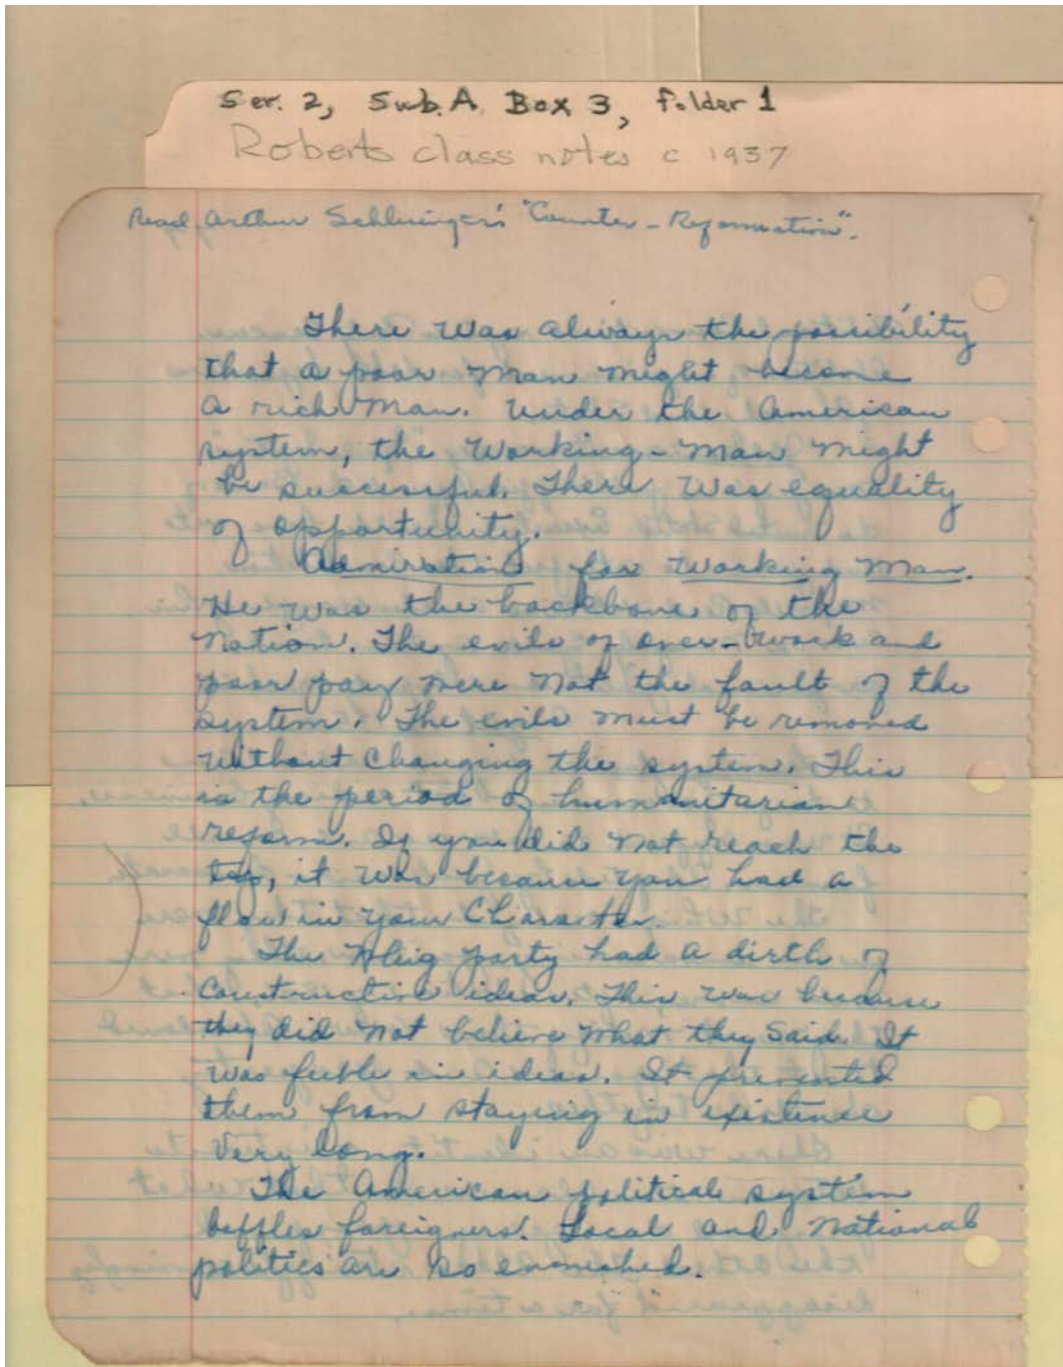 Ser. 2, Sub. A, Box 3, folder 1
Roberts class notes c 1937
Read Arthur Schlesinger's "Counter-Reformation".
There was always the possibility
that a poor man might become
a rich man. Under the American
system, the working-man might
be successful. There was equality
of opportunity.
Admiration for working man.
He was the backbone of the
nation. The evils of over-work and
poor pay were not the fault of the
system. The evils must be removed
without changing the system. This
is the period of humanitarian
reform. If you did not reach the
top, it was because you had a
flaw in your character.
The Whig party had a dirth of
constructive ideas. This was because
they did not believe what they said. It
was feeble in ideas. It prevented
them from staying in existence
very long.
The American political system
baffles foreigners. Local and national
politics are so enmeshed.